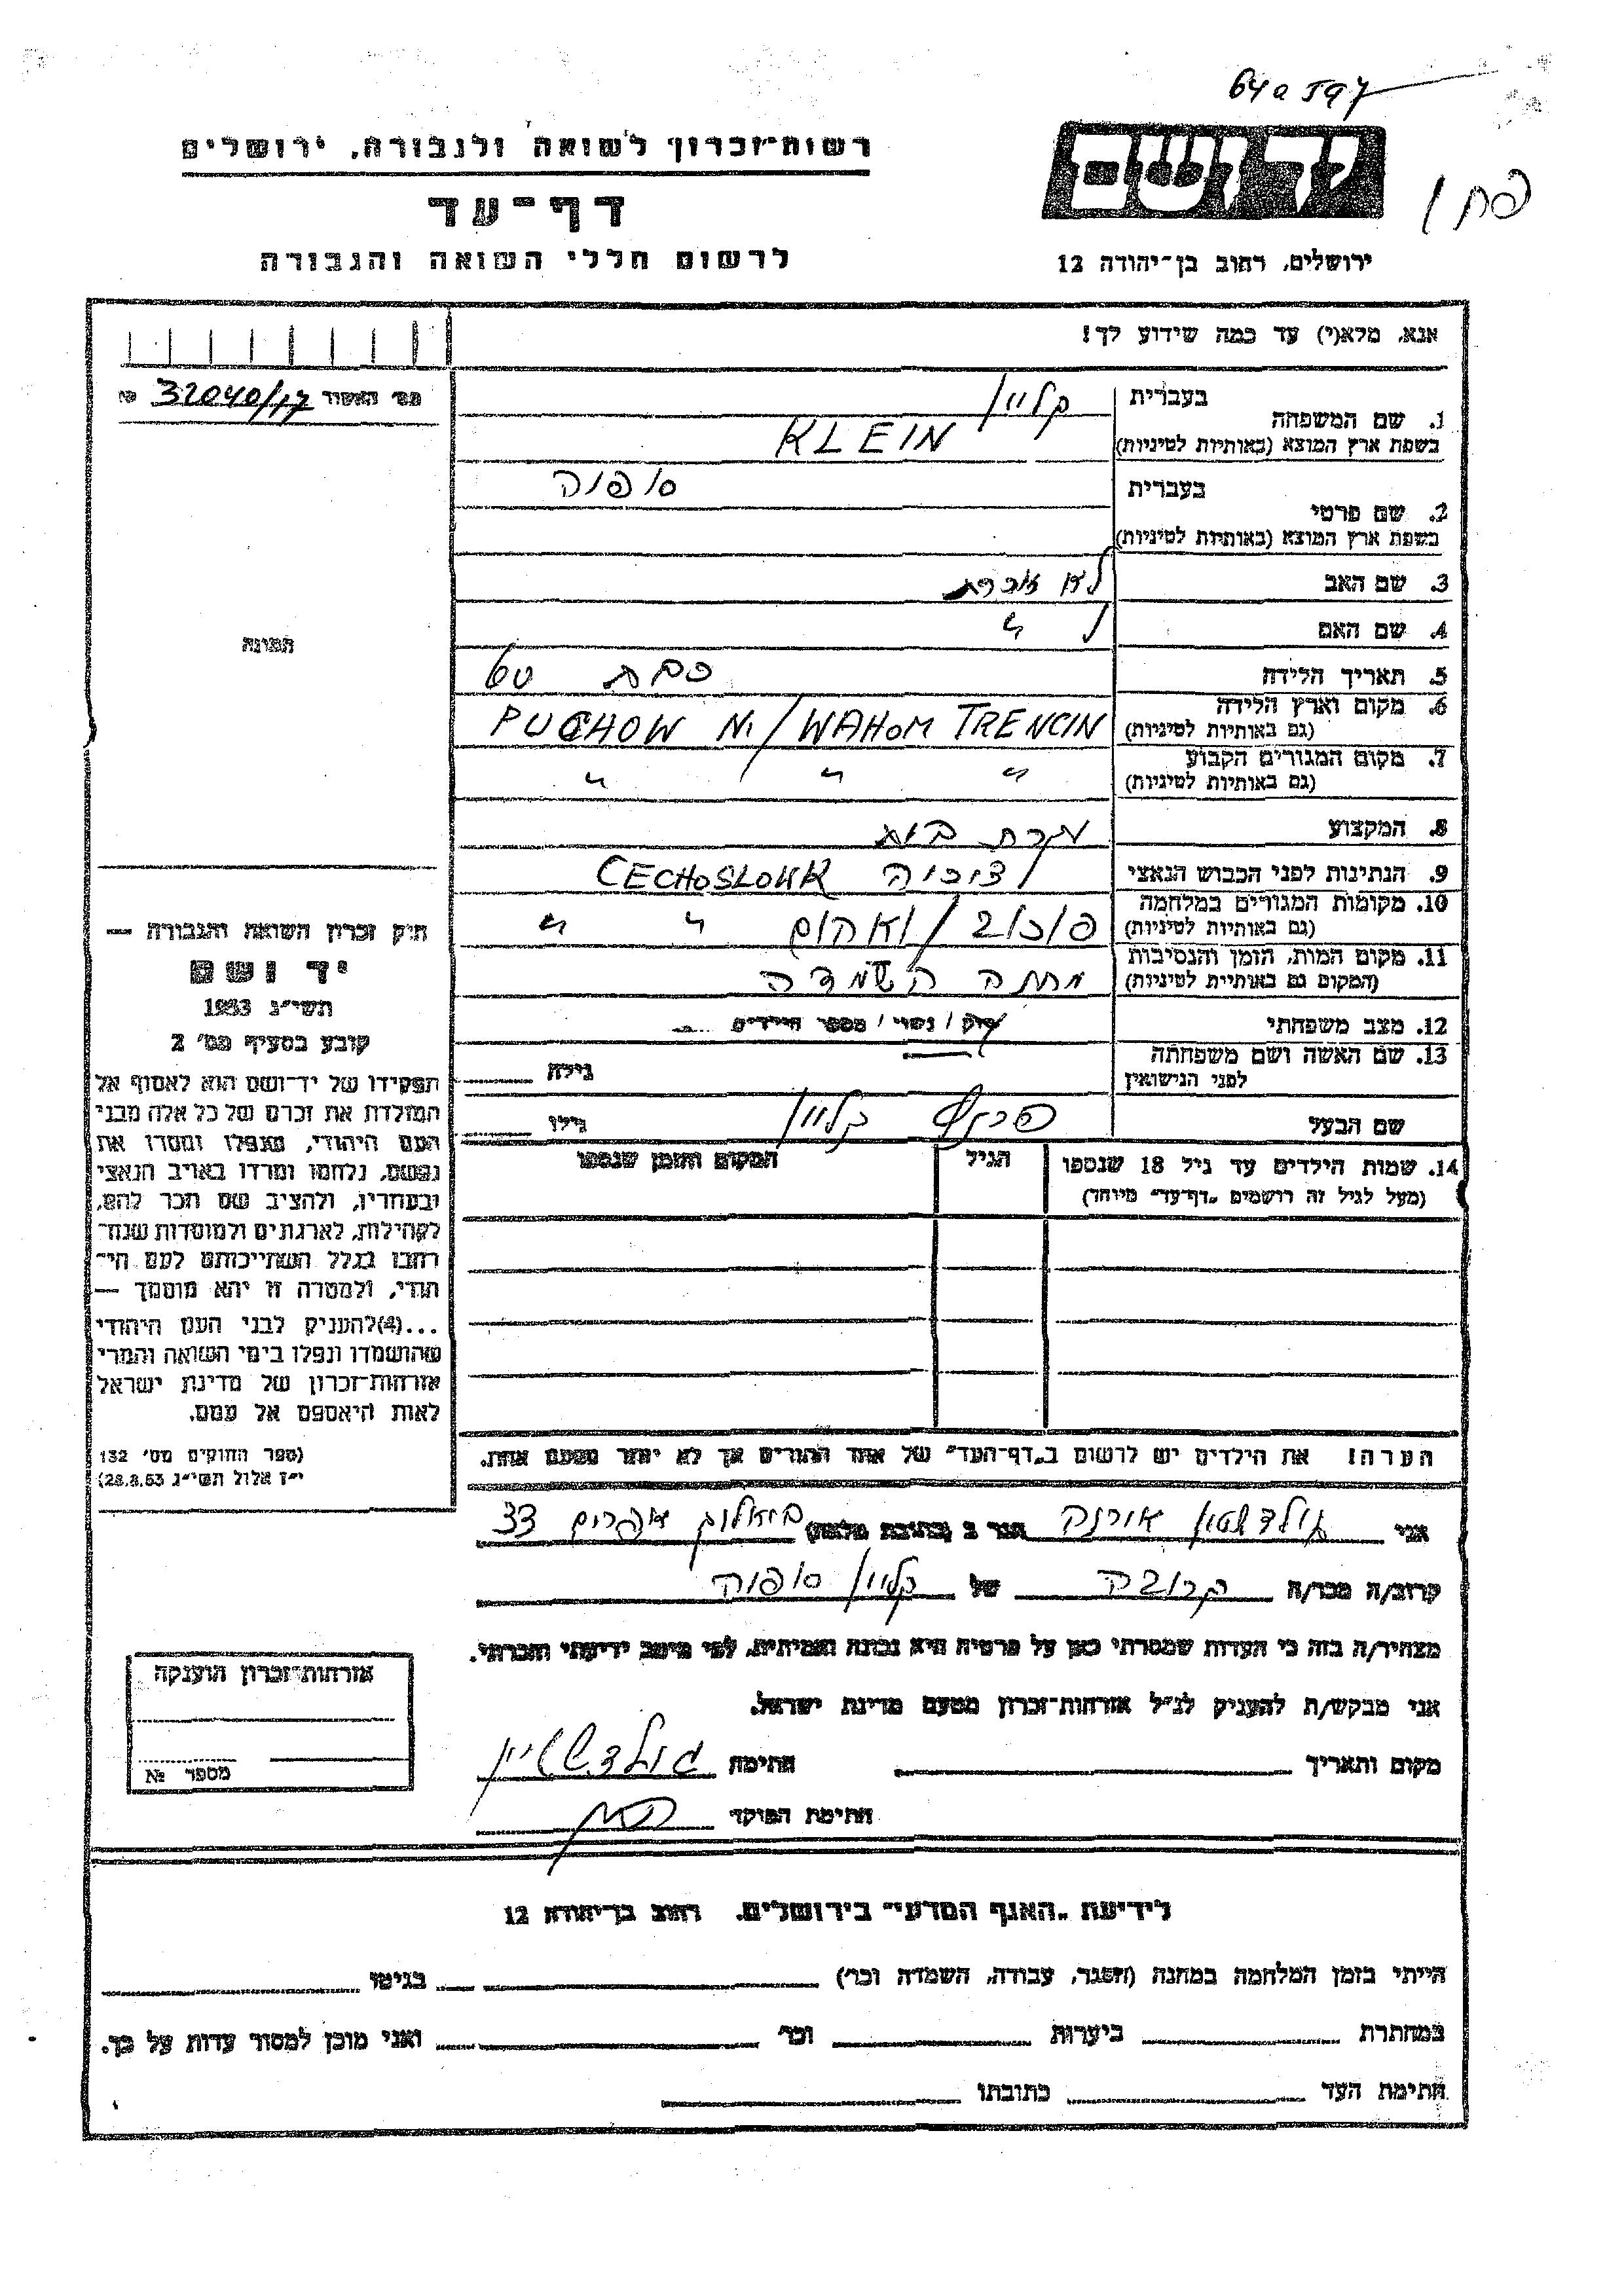 64a 597
רשות־זכרון לשואה ולגבורה, ירושלים
יד ושם
דף־עד
לרשום חללי השואה והגבורה
ירושלים, רחוב בן־יהודה 12
אנא, מלא(י) עד כמה שידוע לך!
מס׳ האשור № 32040/17
1. שם המשפחה בעברית קליין
בשפת ארץ המוצא (באותיות לטיניות) KLEIN
2. שם פרטי בעברית סופיה
בשפת ארץ המוצא (באותיות לטיניות)
3. שם האב לא זוכרת
4. שם האם ל "
תמונה
5. תאריך הלידה כבת 60
6. מקום וארץ הלידה (גם באותיות לטיניות) PUCHOW N/WAHOM TRENCIN
7. מקום המגורים הקבוע (גם באותיות לטיניות) " " "
8. המקצוע עקרת בית
9. הנתינות לפני הכבוש הנאצי צ׳כיה CECHOSLOWAK
10. מקומות המגורים במלחמה (גם באותיות לטיניות) פוכוב/ואהום " "
11. מקום המות, הזמן והנסיבות (המקום גם באותיות לטיניות) מחנה השמדה
12. מצב משפחתי רוק / נשוי / מספר הילדים
13. שם האשה ושם משפחתה לפני הנישואין גילה
שם הבעל קליין גילו
14. שמות הילדים עד גיל 18 שנספו הגיל המקום והזמן שנספו
(מעל לגיל זה רושמים „דף־עד" מיוחד)
הערה! את הילדים יש לרשום ב„דף־העד" של אחד ההורים אך לא יותר מפעם אחת.
חוק זכרון השואה והגבורה —
יד ושם
תשי״ג 1953
קובע בסעיף מס׳ 2
תפקידו של יד־ושם הוא לאסוף אל
המולדת את זכרם של כל אלה מבני
העם היהודי, שנפלו ומסרו את
נפשם, נלחמו ומרדו באויב הנאצי
ובעוזריו, ולהציב שם וזכר להם,
לקהילות, לארגונים ולמוסדות שנח־
רבו בגלל השתייכותם לעם הי־
הודי, ולמטרה זו יהא מוסמך —
...(4) להעניק לבני העם היהודי
שהושמדו ונפלו בימי השואה והמרי
אזרחות־זכרון של מדינת ישראל
לאות היאספם אל עמם.
(ספר החוקים מס׳ 132
י״ז אלול תשי״ג 28.8.53)
אני גולדשטיין אירנה הגר ב (כתובת מלאה) אפרים 33
קרוב/ה מכר/ה קרובה של קליין סופיה
מצהיר/ה בזה כי העדות שמסרתי כאן על פרטיה היא נכונה ואמיתית, לפי מיטב ידיעתי והכרתי.
אני מבקש/ת להעניק לנ״ל אזרחות־זכרון מטעם מדינת ישראל.
מקום ותאריך חתימה גולדשטיין
חתימת הפוקד
אזרחות־זכרון הוענקה
מספר №
לידיעת „האגף המדעי" בירושלים, רחוב בן־יהודה 12
הייתי בזמן המלחמה במחנה (הסגר, עבודה, השמדה וכו׳) בגיטו
במחתרת ביערות וכו׳ ואני מוכן למסור עדות על כך.
חתימת העד כתובתו